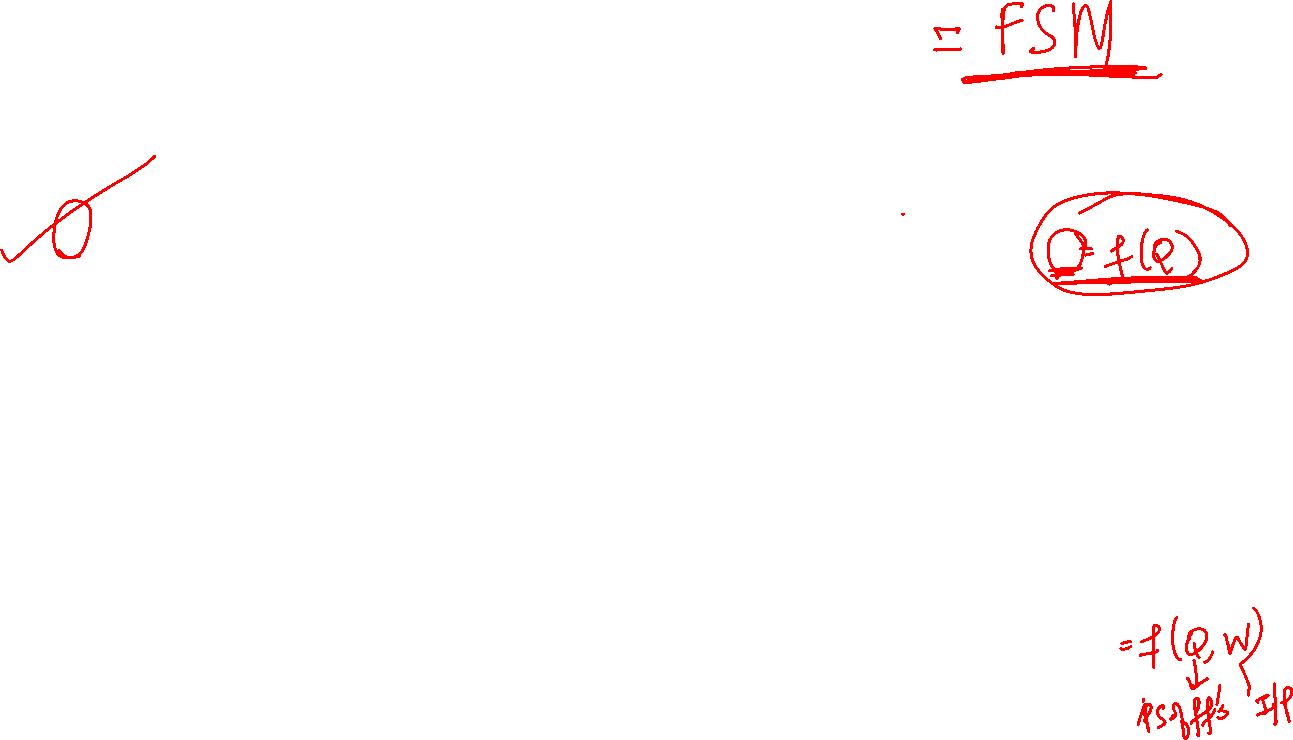 = FSM
0
O = f(Q)
= f(Q, W)
PS of ff's I/P